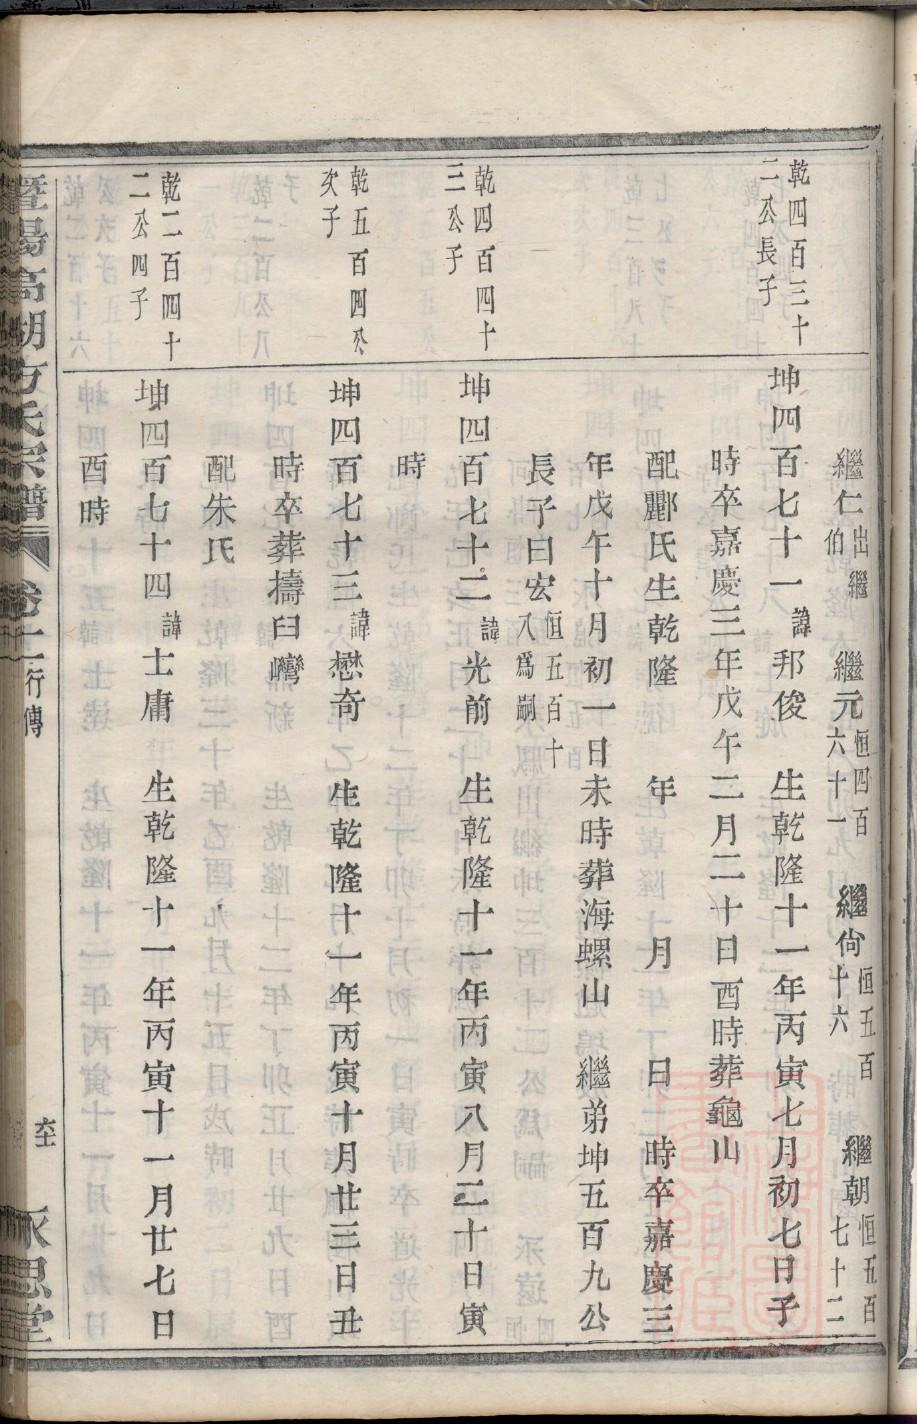 繼仁出繼伯 繼元恒四百六十一 繼尙恒五百十六 繼朝恒五百七十二
乾四百三十二公長子
坤四百七十一諱邦俊 生乾隆十一年丙寅七月初七日子
時卒嘉慶三年戊午二月二十日酉時葬龜山
配酈氏生乾隆 年 月 日 時卒嘉慶三
年戊午十月初一日未時葬海螺山 繼弟坤五百九公
長子曰宏恒五百十八爲嗣
乾四百四十三公子
坤四百七十二諱光前 生乾隆十一年丙寅八月二十日寅
時
乾五百四公次子
坤四百七十三諱懋奇 生乾隆十一年丙寅十月廿三日丑
時卒葬擣臼灣
配朱氏
乾二百四十二公四子
坤四百七十四諱士庸 生乾隆十一年丙寅十一月廿七日
酉時
暨陽高湖方氏宗譜 卷十 行傳 永思堂